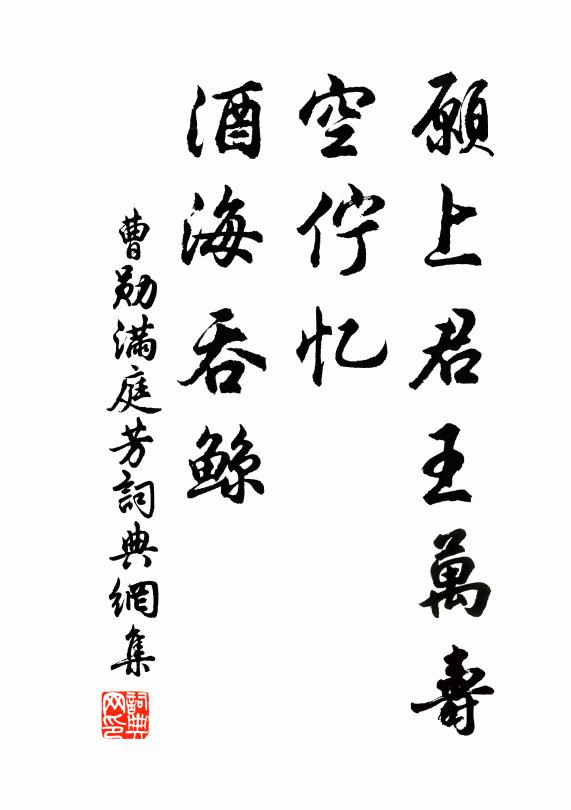 願上君王萬壽
空佇忆
酒海吞鲸
曹勋滿庭芳詞典網集
詞典
网印